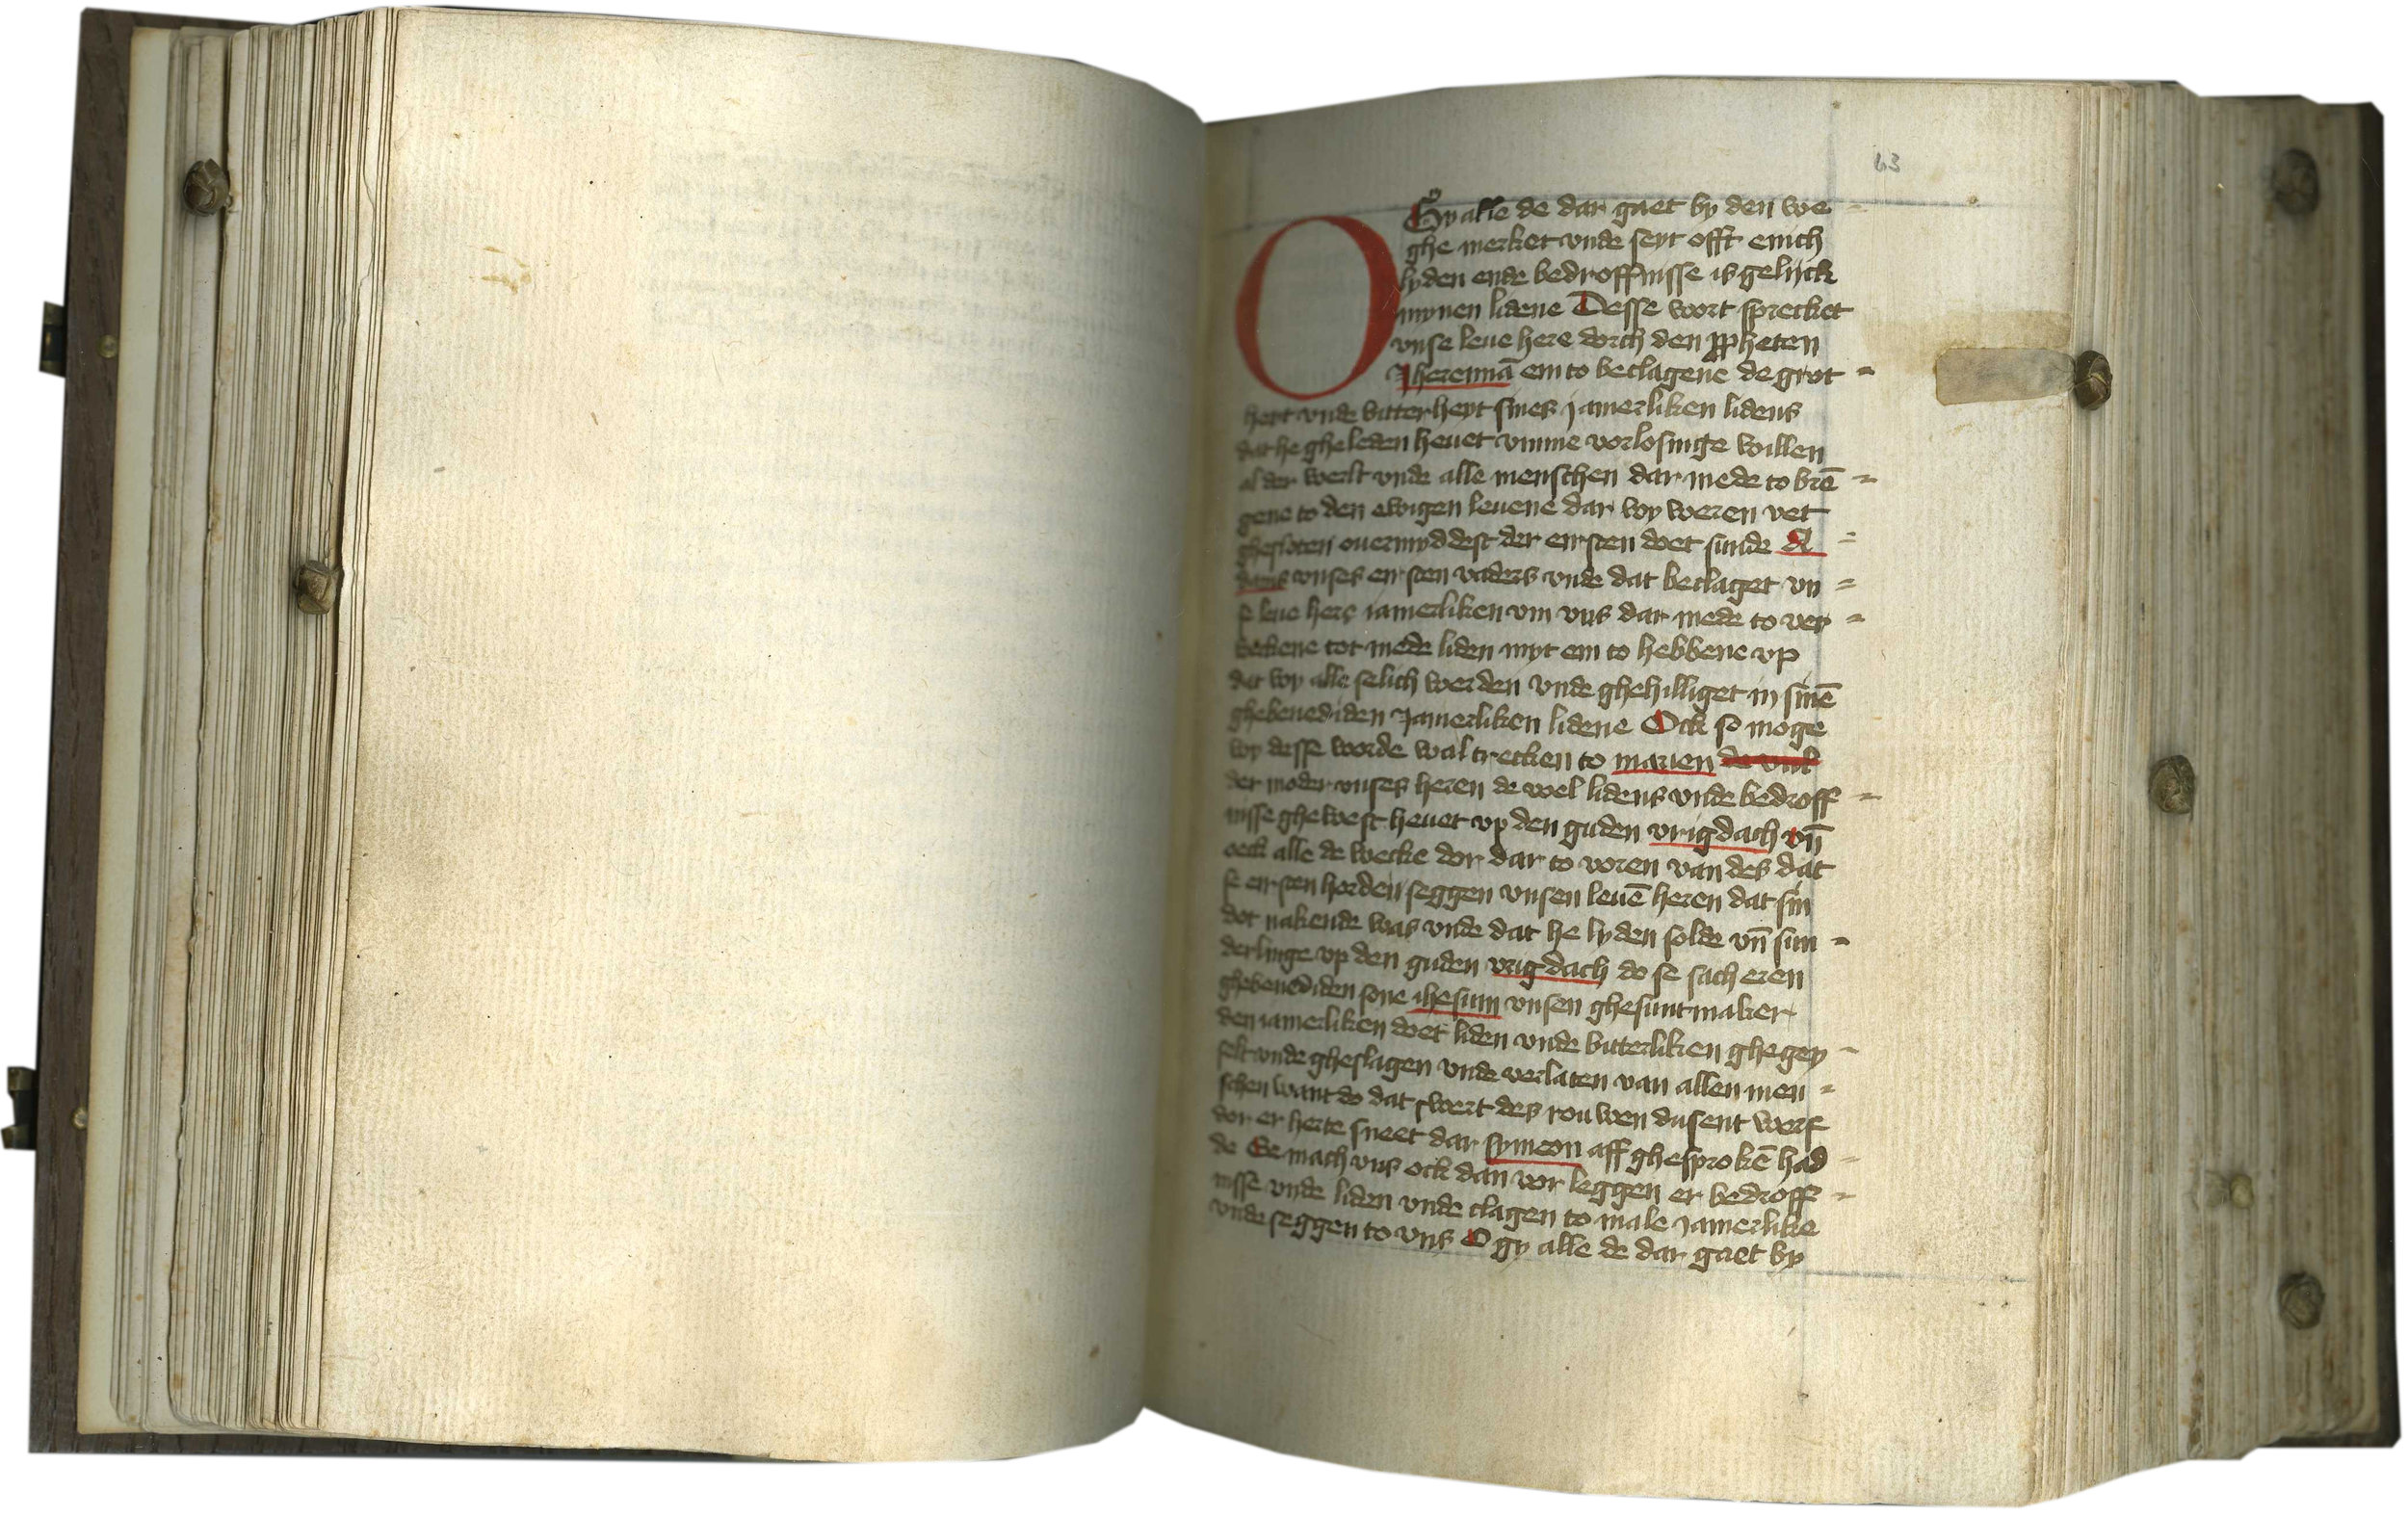 63
O Gy alle de dar gaet by den we =
ghe merket vnde seyt offt enich
lyden ende bedroffnisse is gelijck
mynen lidene Desse woort sprecket
vnse leue here dorch den ppheten
Jheremiā em to beclagene de grot =
heyt vnde bitterheyt sines jamerliken lidens
dat he gheleden heuet vmme vorlosinge willen
al der werlt vnde alle menschen dar mede to brē =
gene to den ewigen leuene dar wy weren vet
ghesloten ouermyddest der eirsten doet sunde A =
dams vnses eirsten vaders vnde dat beclaget vn =
se leue here iamerliken vm vns dar mede to ver =
weckene tot mede liden myt em to hebbene vp
dat wy alle selich werden vnde ghehilliget in sinē
ghebenediden Jamerliken lidene Ock so moge
wy desse worde wal trecken to marien de vul
der moder vnses heren de voel lidens vnde bedroff =
nisse ghewest heuet vp den guden vrigdach vn̄
oeck alle de wecke dor dar to voren van des dat
se eirsten horden seggen vnsen leuē heren dat sin
dot nakende was vnde dat he lyden solde vn̄ sun =
derlinge vp den guden vrigdach do se sach eren
ghebenediden sone ihesum vnsen ghesuntmaker
den iamerliken doet liden vnde bitterliken ghegey =
selt vnde gheslagen vnde verlaten van allen men =
schen want do dat swert des rouwen dusent werf
dor er herte sneet dar symeon aff ghesprokē had =
de Se mach vns ock dan vor leggen er bedroff =
nisse vnde liden vnde clagen to male jamerlike
vnde seggen to vns O gy alle de dar gaet by